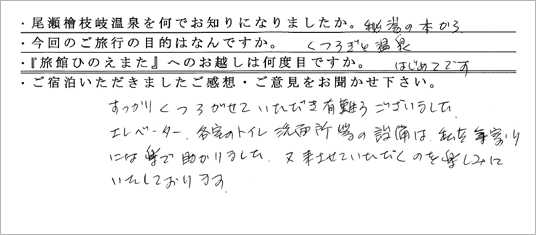 ・尾瀬檜枝岐温泉を何でお知りになりましたか。秘湯の本から
・今回のご旅行の目的はなんですか。くつろぎと温泉
・『旅館ひのえまた』へのお越しは何度目ですか。はじめてです
・ご宿泊いただきましたご感想・ご意見をお聞かせ下さい。
すっかりくつろがせていただき有難うございました。
エレベーター、各室のトイレ洗面所等の設備は、私共年寄り
には楽で助かりました。又来させていただくのを楽しみに
いたしております。